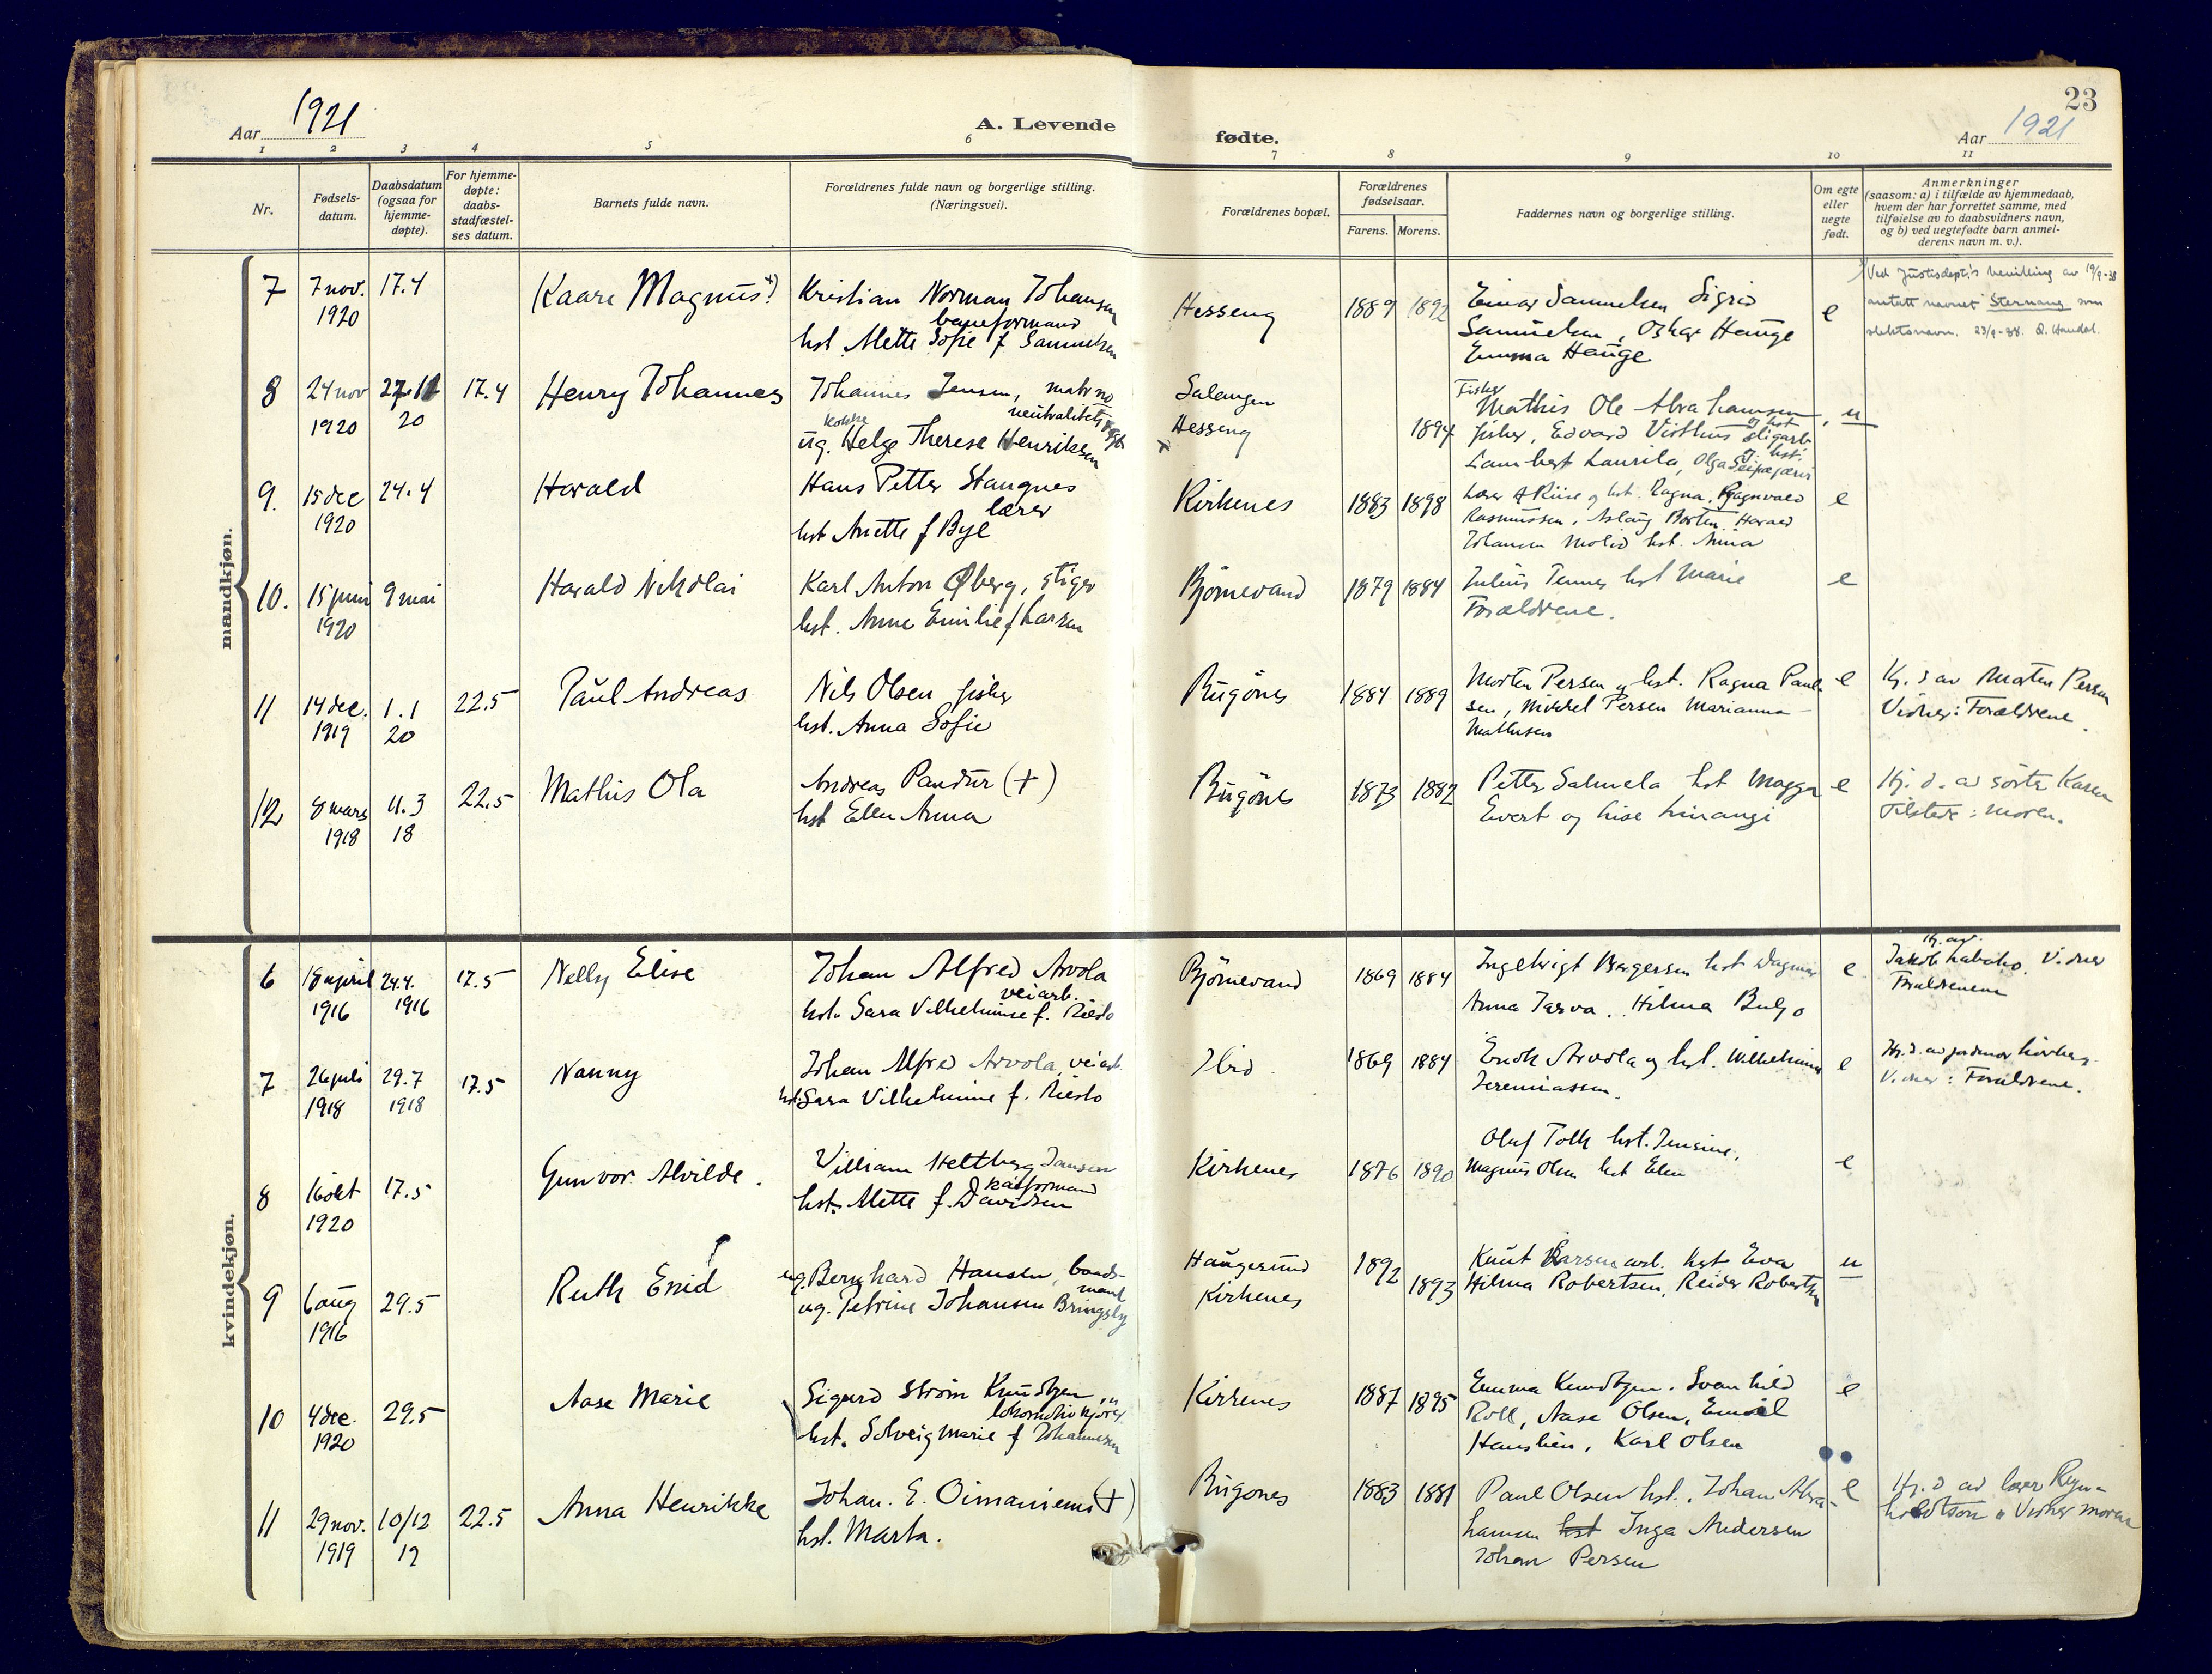 23
Aar 1921
A. Levende fødte.
Aar 1921
1 2 3 4 5 6 7 8 9 10 11
Nr.
Fødsels-
datum.
Daabsdatum
(ogsaa for
hjemme-
døpte).
For hjemme-
døpte:
daabs-
stadfæstel-
ses datum.
Barnets fulde navn.
Forældrenes fulde navn og borgerlige stilling.
(Næringsvei).
Forældrenes bopæl.
Forældrenes
fødselsaar.
Farens. Morens.
Faddernes navn og borgerlige stilling.
Om egte
eller
uegte
født.
Anmerkninger
(saasom: a) i tilfælde av hjemmedaab,
hvem der har forrettet samme, med
tilføielse av to daabsvidners navn,
og b) ved uegtefødte barn anmel-
derens navn m. v.).
mandkjøn.
7
7 nov.
1920
17.4
Kaare Magnus
Kristian Norman Johansen
baneformand
hst. Mette Sofie f Samuelsen
Hesseng
1889 1892
Einar Samuelsen Sigrid
Samuelsen, Oskar Hauge
Emma Hauge
e
Ved Justisdept.'s bevilling av 19/9-38
antatt navnet Sternang som
slektsnavn. 23/9-38.
8
24 nov
1920
27.11
20
17.4
Henry Johannes
Johannes Jensen, matr no
neutralitets
kokke
ug. Helge Therese Henriksen
Salangen
Hesseng
1894
Fisker
Mathis Ole Abrahamsen
og hst
fisker, Edvard
Lambert Laurila, Olga
u
9.
15 dec
1920
24.4
Harald
Hans Petter Stangnes
lærer
hst Anette f Bye
Kirkenes
1883 1898
Lærer A Riise og hst. Ragna, Ragnvald
Rasmussen, Aslaug Borten, Harald
Johansen Molid hst. Anna
e
10.
15 juni
1920
9 mai
Harald Nikolai
Karl Anton Øberg, stiger
hst. Anne Emilie f Larsen
Bjørnevand
1879 1884
Julius Tennes hst Marie
Forældrene.
e
11
14 dec.
1919
1.1
20
22.5
Paul Andreas
Nils Olsen fisker
hst. Anna Sofie
Bugønes
1884 1889
Morten Persen og hst. Ragna Paul-
sen, Mikkel Persen Marianna
Mathisen
e
Hj. d av Morten Persen
Vidner: Forældrene.
12
8 mars
1918
11.3
18
22.5
Mathis Ola
Andreas Pandur (+)
hst Ellen Anna
Bugønes
1873 1882
Petter Salmela hst Magga
Evert og Lise Linangi
e
Hj. d. av Karen
Tilstede: moren.
kvindekjøn.
6
18 april
1916
24.4.
1916
17.5
Nelly Elise
Johan Alfred Arvola
veiarb.
hst. Sara Vilhelmine f. Riesto
Bjørnevand
1869 1884
Ingebrigt Bergersen hst Dagmar
Anna Tarva. Hilma Buljo
e
Hj. av.
Jakob Labaho. Vidner
Forældrene
7
26 juli
1918
29.7
1918
17.5
Nanny
Johan Alfred Arvola, veiarb.
hst. Sara Vilhelmine f. Riesto
Ibid
1869 1884
Enok Arvola og hst. Wilhelmine
Jeremiassen.
e
Hj. d. av jordmor
Vidner: Forældrene.
8
16 okt
1920
17.5
Gunvor Alvilde.
William Heltberg Jansen
kaiformand
hst. Mette f. Davidsen
Kirkenes
1876 1890
Oluf Toth hst. Jensine,
Magnus Olsen hst Elen
e
9
6 aug
1916
29.5
Ruth Enid
ug. Bernhard Hansen, baads-
mand
ug. Petrine Johansen Bringsby
Haugesund
Kirkenes
1892
1893
Knut Larsen arb. hst Eva
Hilma Robertsen, Reidar Robertsen
u
10
4 dec.
1920
29.5
Aase Marie
Sigurd Strøm Knudtzen
lokomotivkjører
hst. Solveig Marie f Johannesen
Kirkenes
1887 1895
Emma Knudtzen. Svanhild
Roll, Aase Olsen, Emil
Hanslien, Karl Olsen
e
11
29 nov.
1919
10/12
19
22.5
Anna Henrikke
Johan. E. Oimaniemi (+)
hst. Marta.
Bugønes
1883 1881
Paul Olsen hst., Johan Abra-
hamsen hst Inga Andersen
Johan Persen
e
Hj. d av lærer Reyn-
Vidner moren